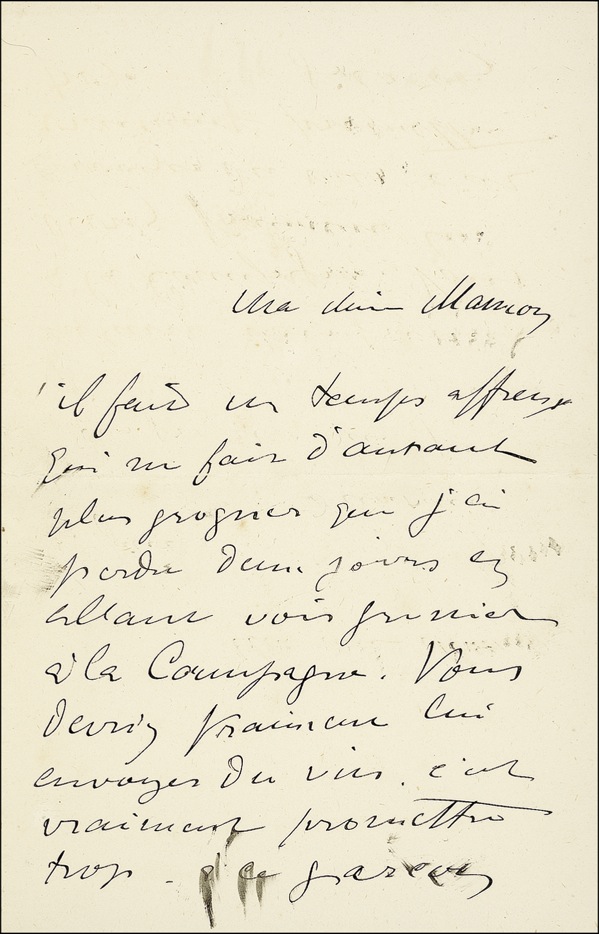 Ma chère Maman
il fait un temps affreux
qui me fait d'autant
plus grogner que j'ai
perdu deux jours en
allant voir grenier
à la Campagne. Vous
devriez vraiment lui
envoyer du vin. c'est
vraiment promettre
trop. à ce garçon